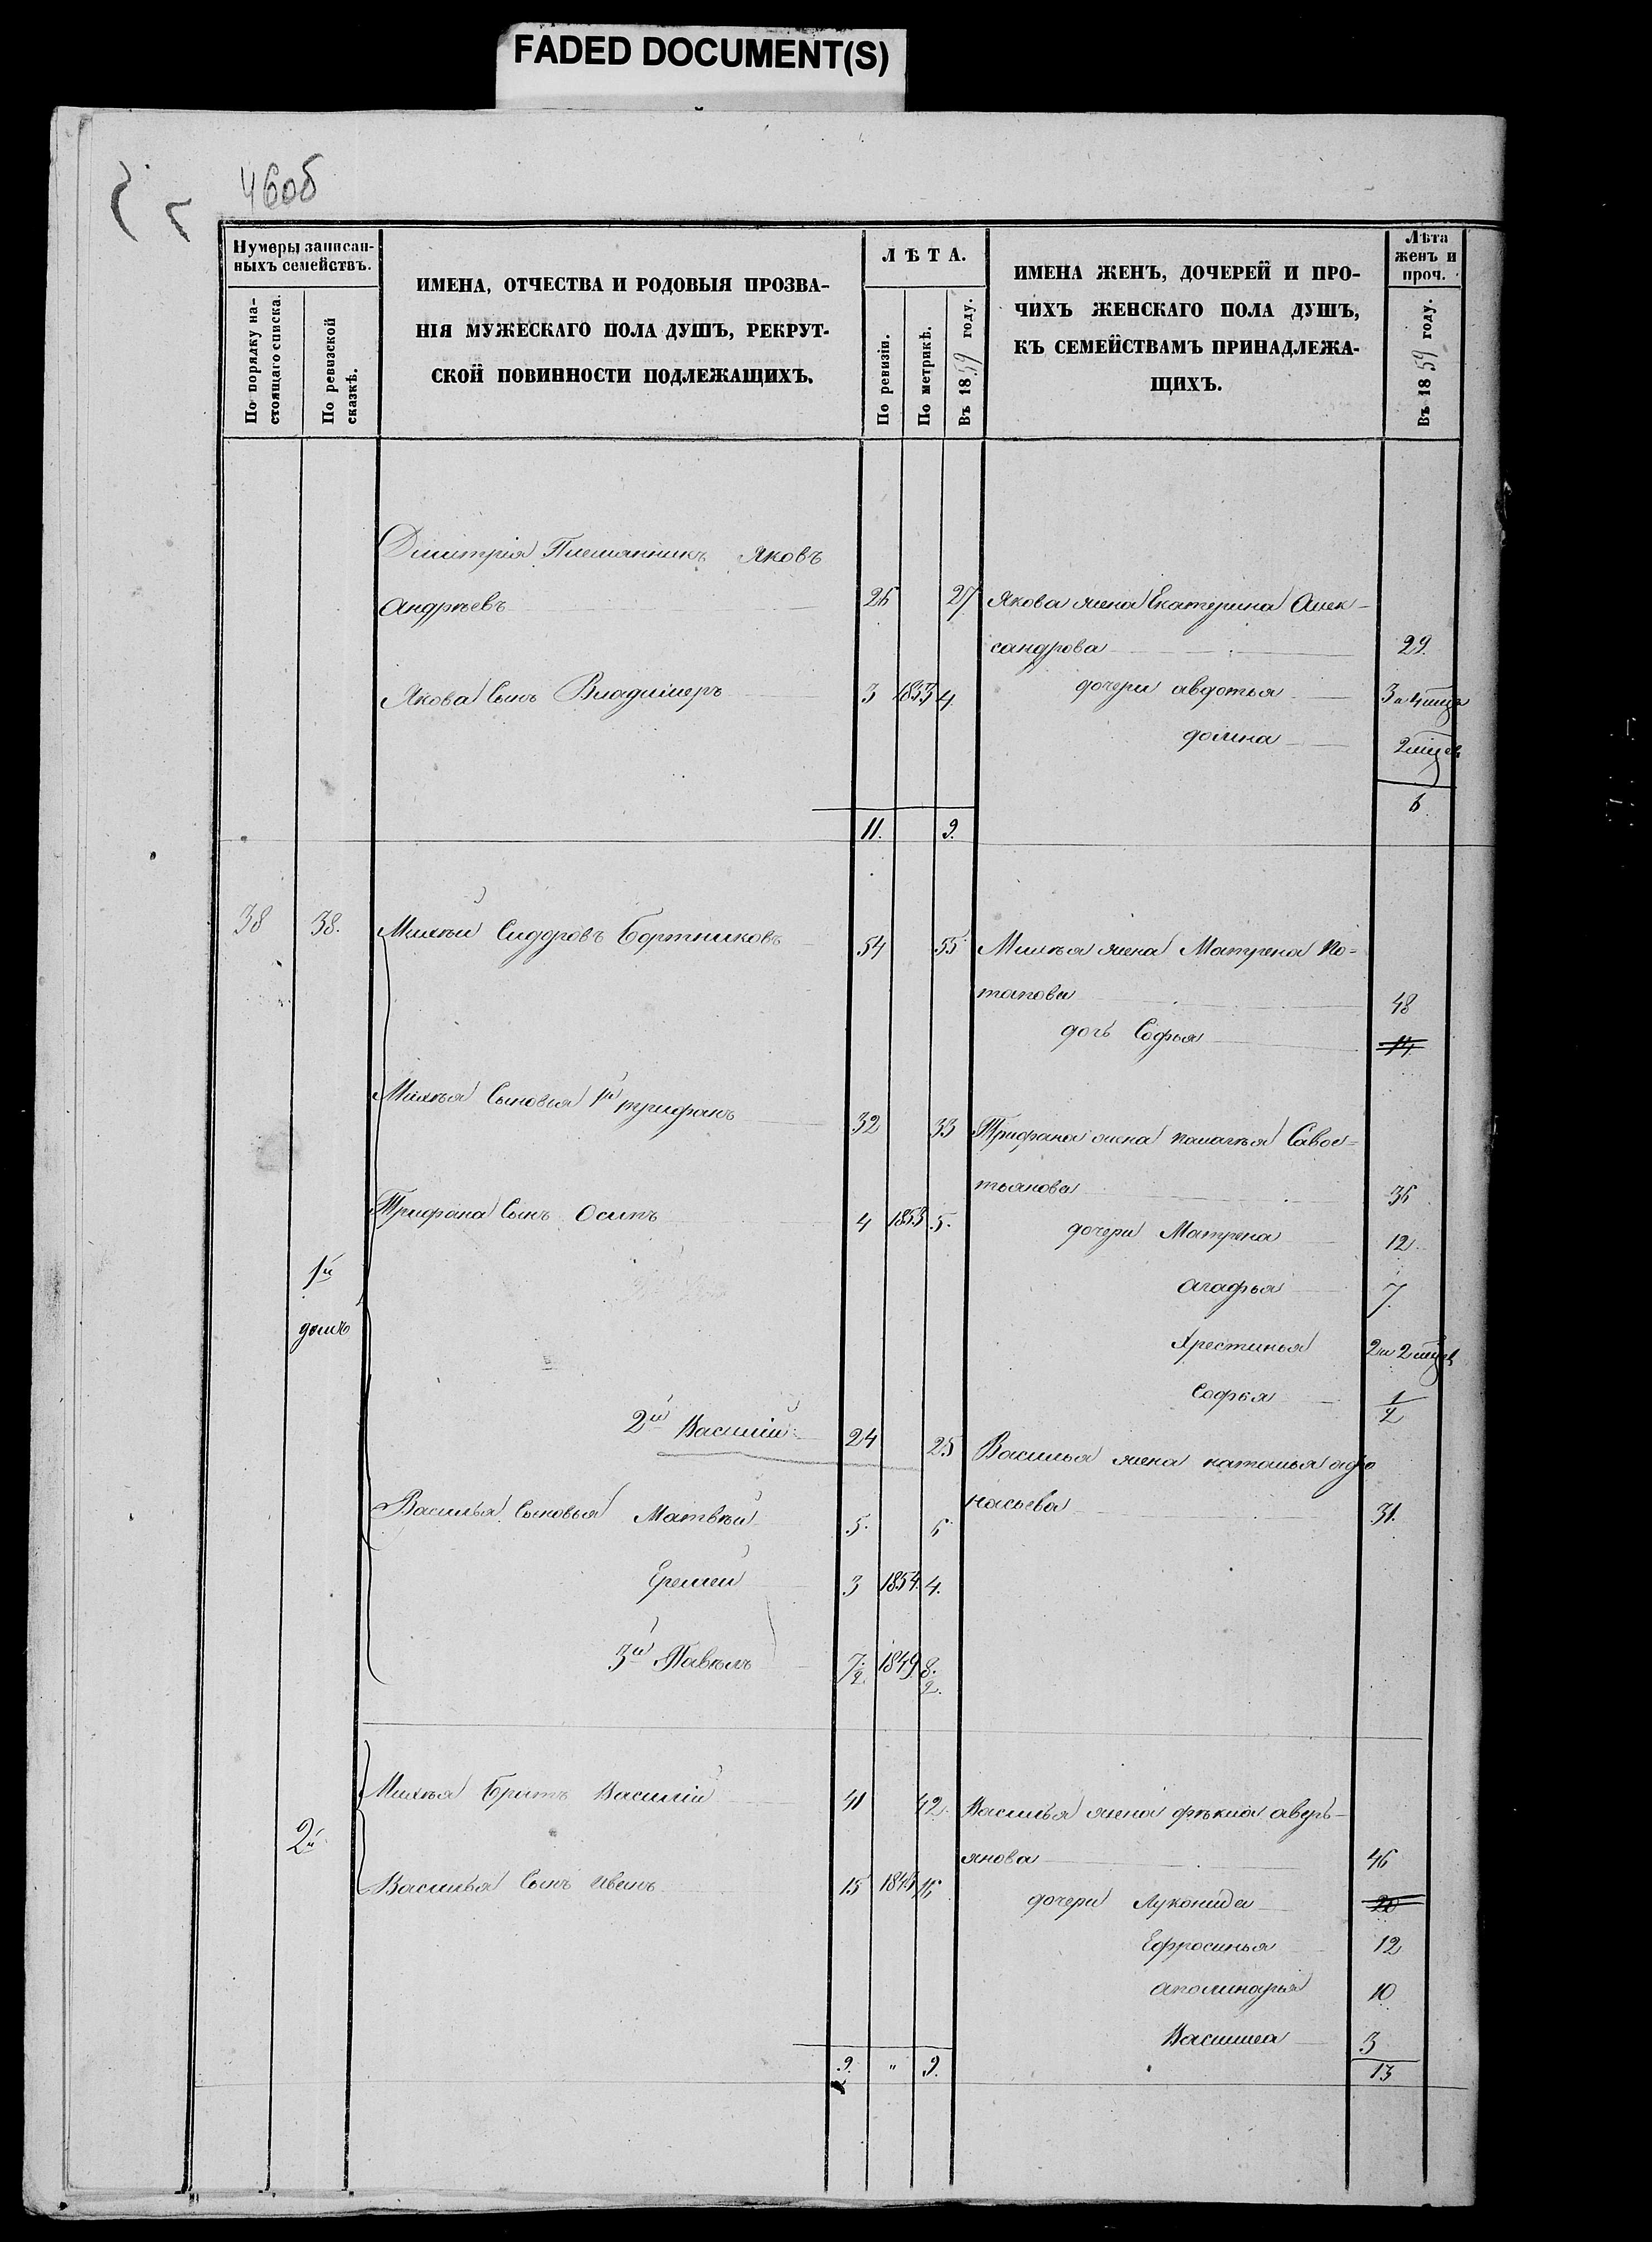 FADED DOCUMENT(S)
460б
Нумеры записан-
ныхъ семействъ.
По порядку на-
стоящаго списка.
По ревизской
сказкѣ.
ИМЕНА, ОТЧЕСТВА И РОДОВЫЯ ПРОЗВА-
НІЯ МУЖЕСКАГО ПОЛА ДУШЪ, РЕКРУТ-
СКОЙ ПОВИННОСТИ ПОДЛЕЖАЩИХЪ.
ЛѢТА.
По ревизіи.
По метрикѣ.
Въ 1859 году.
ИМЕНА ЖЕНЪ, ДОЧЕРЕЙ И ПРО-
ЧИХЪ ЖЕНСКАГО ПОЛА ДУШЪ,
КЪ СЕМЕЙСТВАМЪ ПРИНАДЛЕЖА-
ЩИХЪ.
Лѣта
женъ и
проч.
Въ 1859 году.
Дмитрія Племянникъ Яковъ
Андрѣевъ 26 27 Якова жена Екатерина Алек-
сандрова 29.
Якова Сынъ Владимеръ 3 1853 4 дочери авдотья 3 и 4 мца
домна 2 мцев
6
11. 9.
38 38. Михѣй Сидоровъ Бортниковъ 54 55 Михѣя жена Матрена По-
тапова 48
дочь Софья 14
Михѣя Сыновья 1й трифанъ 32 33 Трифана жена палагѣя Савос-
тьянова 36
Трифана Сынъ Осипъ 4 1853 5. дочери Матрена 12.
1й
домъ
агафья 7.
Хрестинья 2 и 2 мцев
Софья 1/2
2й Василій 24 25 Василья жена наталья афо
насьева 31.
Василья Сыновья Матвѣй 5. 6
Еремей 3 1854. 4.
3й Павелъ 7 1/2. 1849 8. 1/2.
2й
Михѣя братъ Василій 41 42. Василья жена фѣкла аверь-
янова 46
Василья Сынъ Иванъ 15 1843 16 дочери Луконида 20
Ефросинья 12
аполинарья 10
Василиса 3
9. " 9. 13